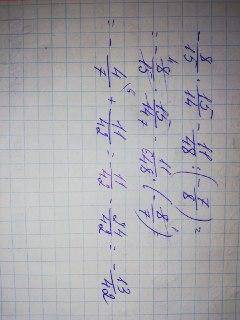 -8/15 · 15/14 - 11/48 : (-7/8) =
= -8/15 · 15/14 - 11/48 · (-8/7)
= -4/7 + 11/42 = 11/42 - 24/42 = -13/42